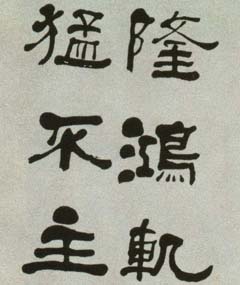 隆鴻軌
猛不主